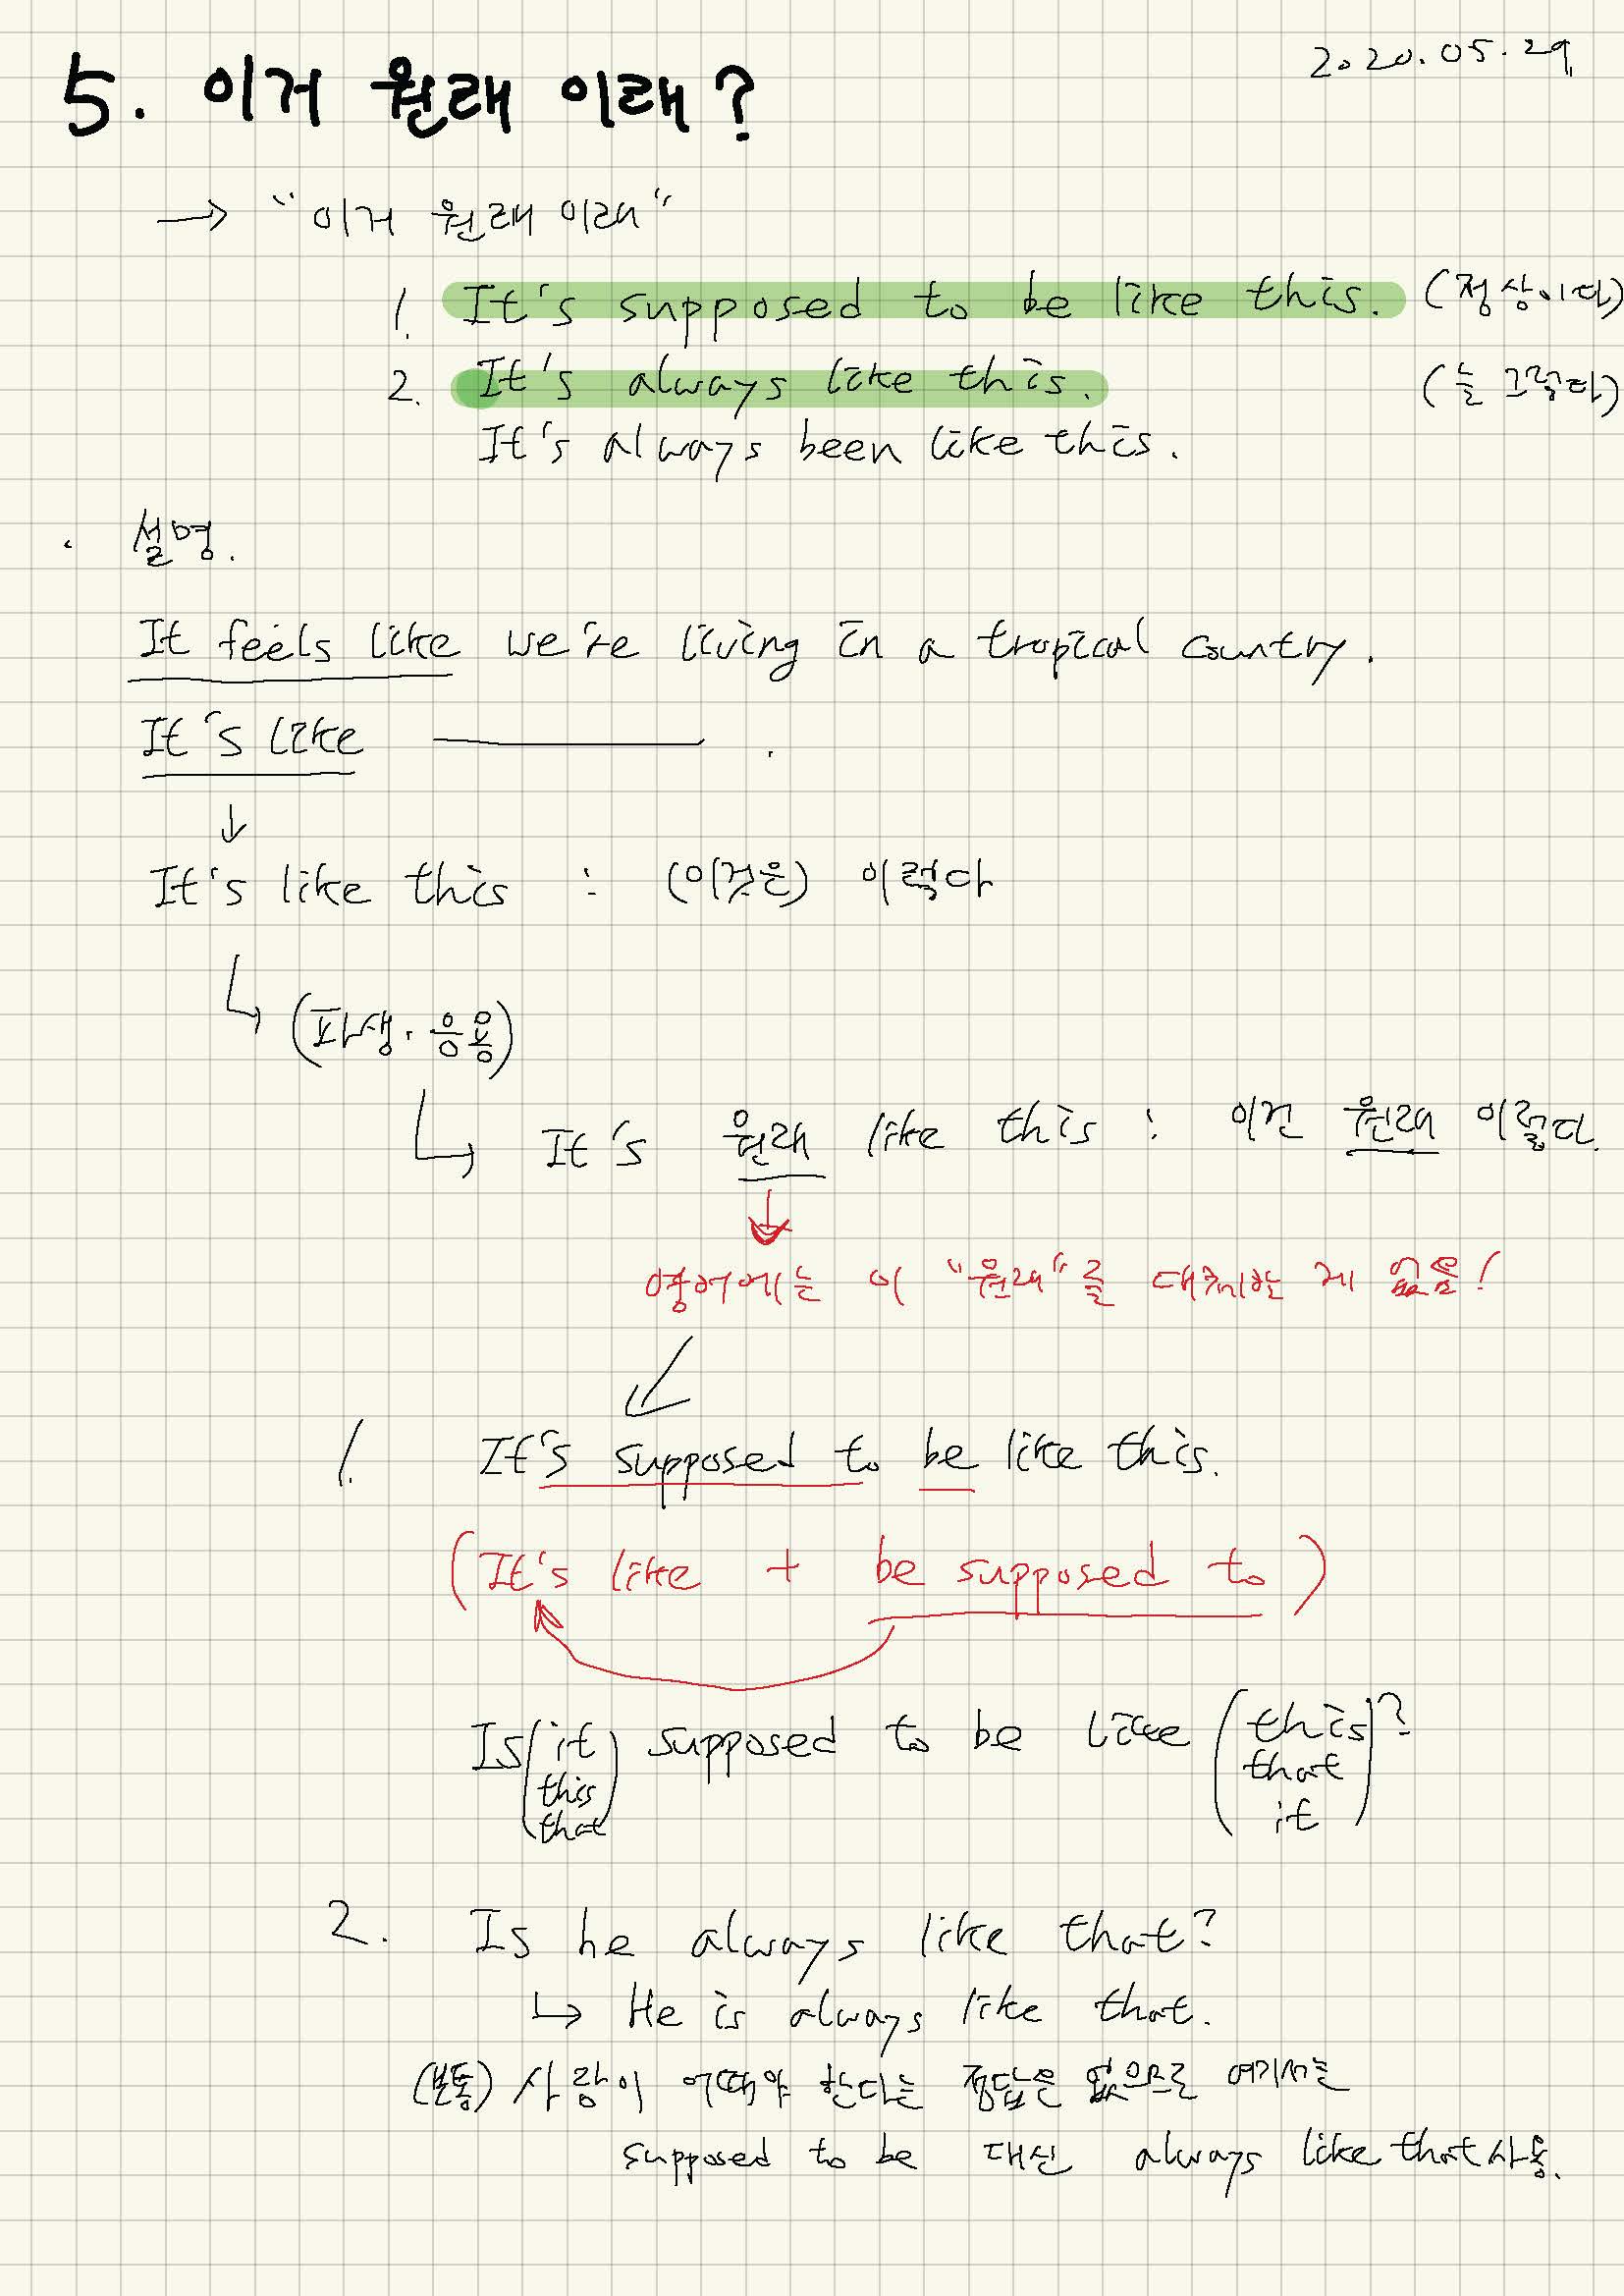 2020.05.29
5. 이거 원래 이래?
→ "이거 원래 이래"
1. It's supposed to be like this. (정상이다)
2. It's always like this. (늘 그렇다)
It's always been like this.
· 설명.
It feels like we're living in a tropical country.
It's like ———.
↓
It's like this : (이것은) 이렇다
↳ (파생·응용)
↳ It's 원래 like this : 이건 원래 이렇다.
영어에는 이 "원래"를 대체하는 게 없음!
1. It's supposed to be like this.
(It's like + be supposed to)
Is (it supposed to be like (this)?
this that
that) it
2. Is he always like that?
↳ He is always like that.
(보통) 사람이 어때야 한다는 정답은 없으므로 여기서는
supposed to be 대신 always like that 사용.